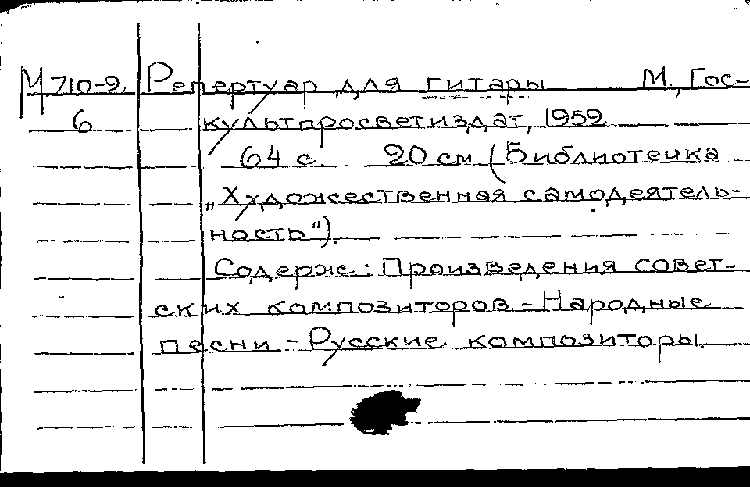 М 710-9. Репертуар для гитары М., Гос-
6 культпросветиздат, 1959
64 с. 20 см. (Библиотечка
„Художественная самодеятель-
ность").
Содерж.: Произведения совет-
ских композиторов - Народные
песни - Русские композиторы.